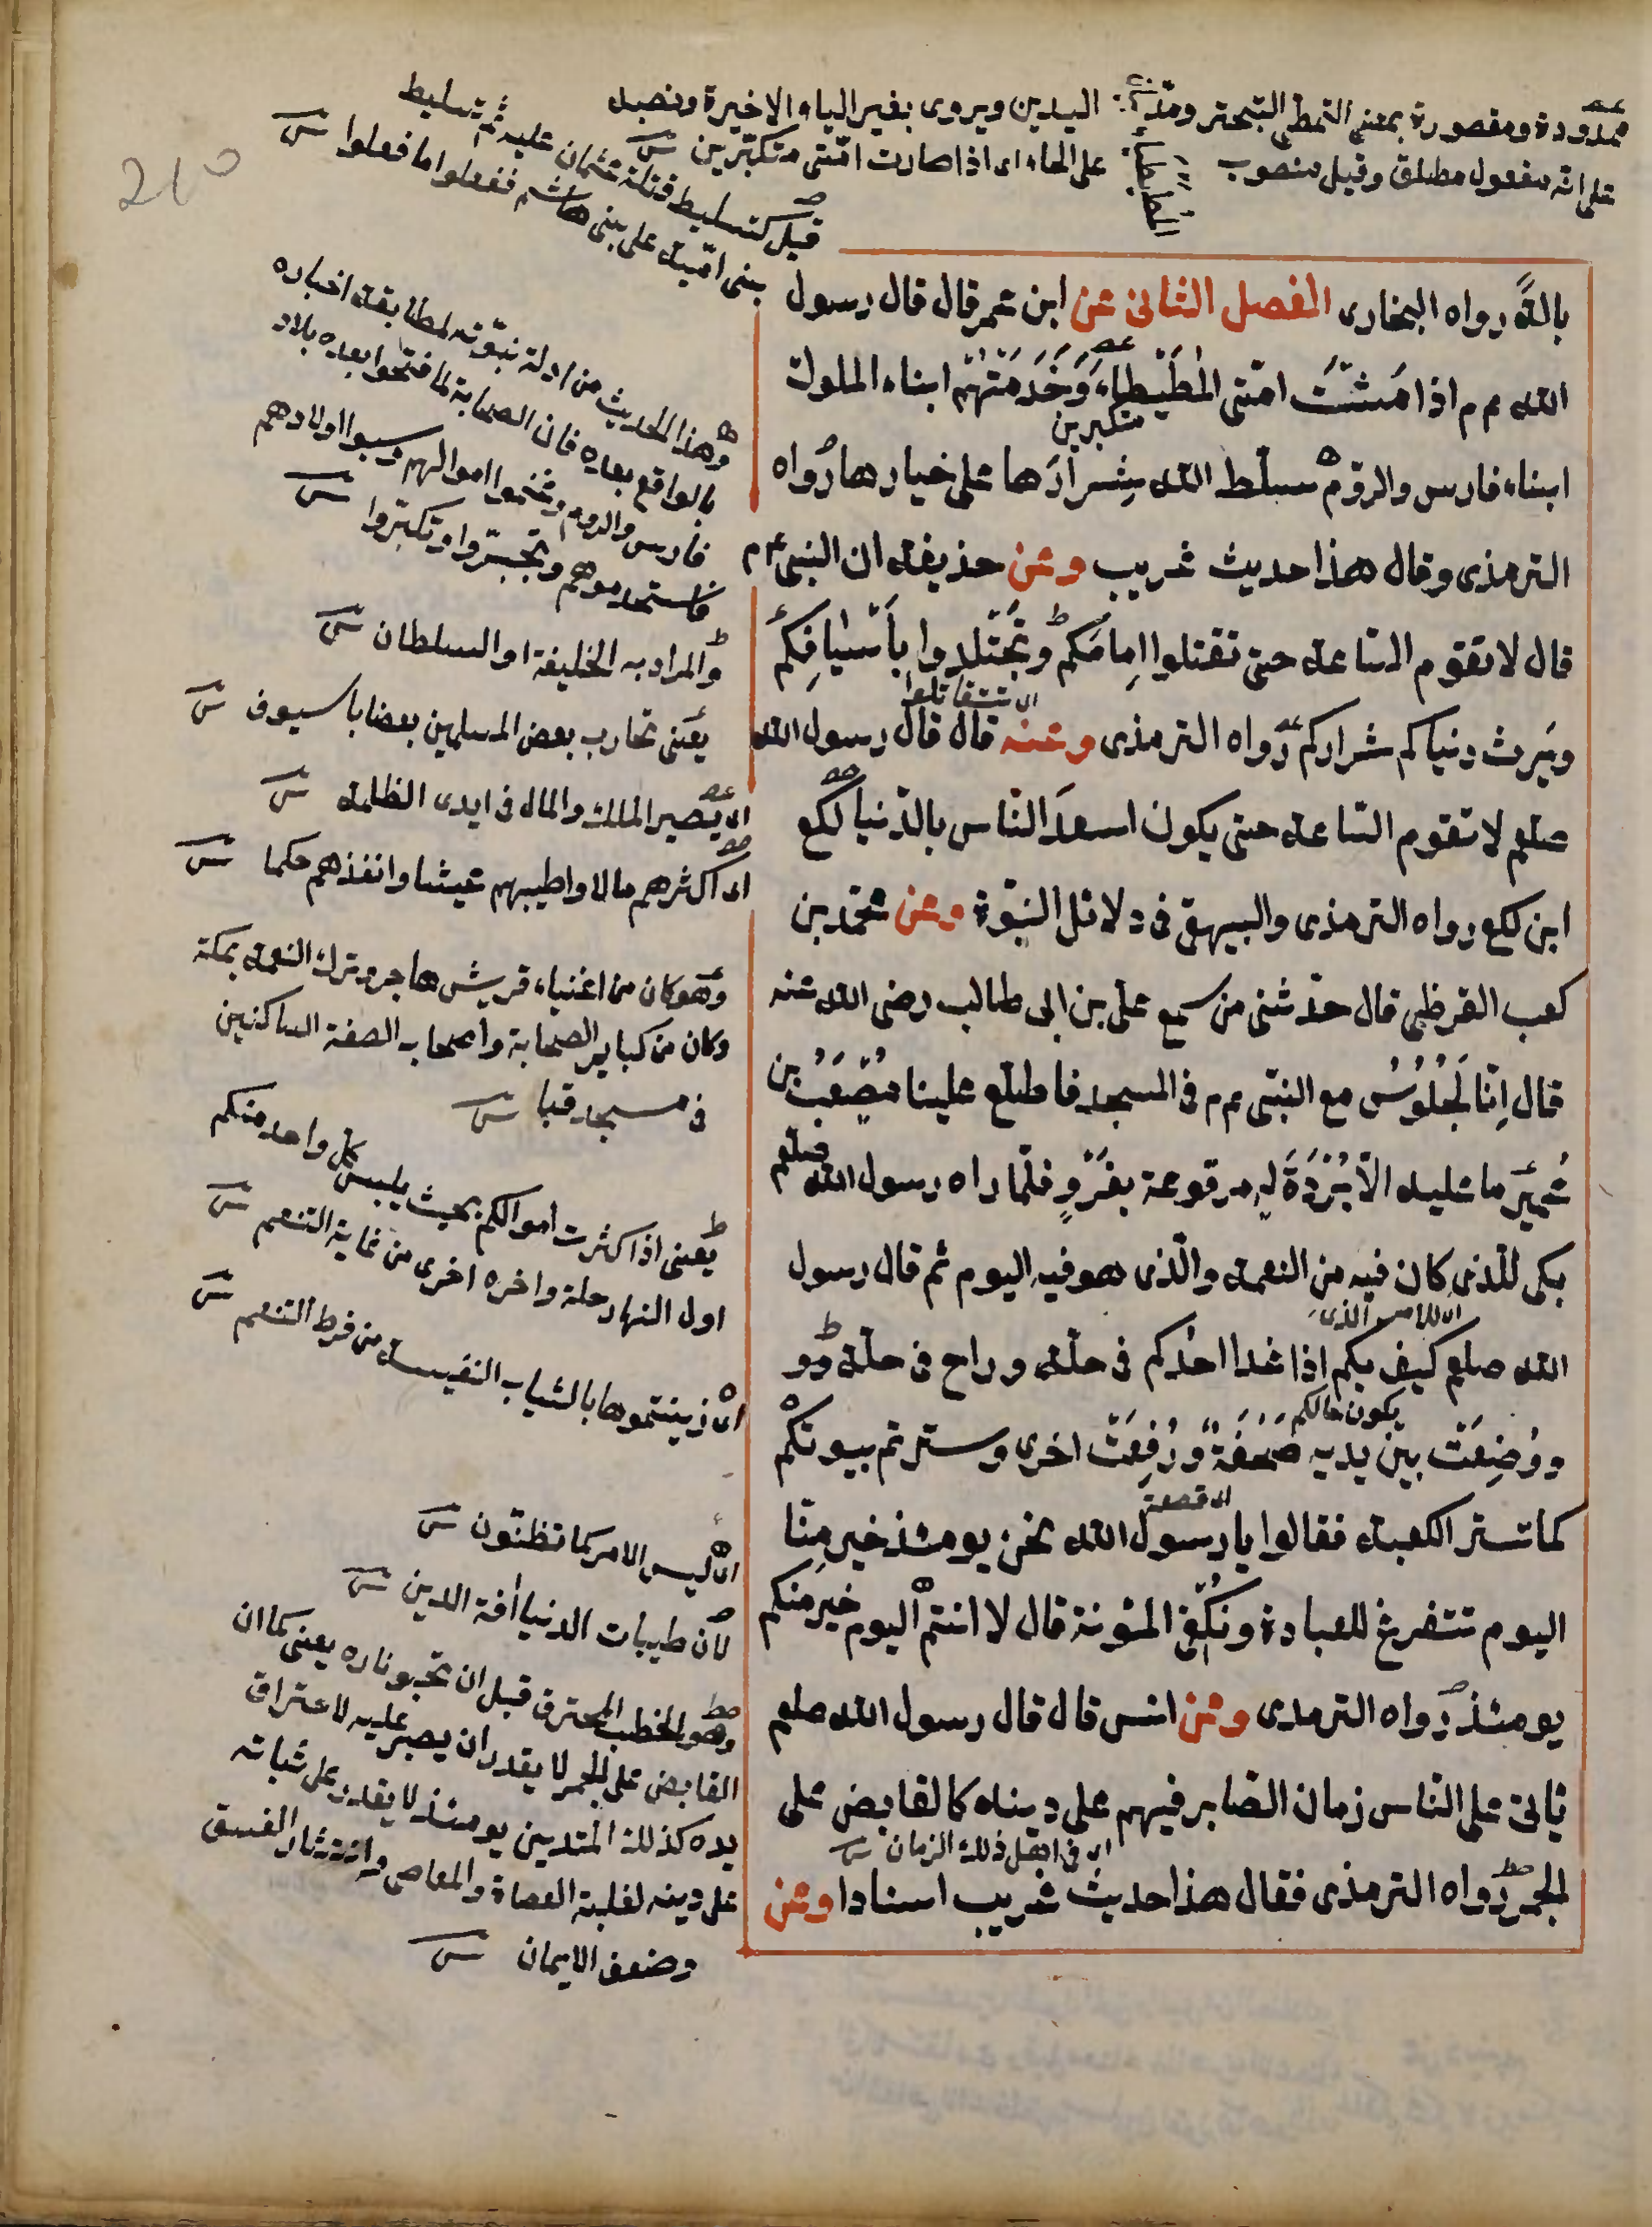 ممدودة ومقصورة بمعنى التمطى التبختر ومدّ اليدين ويروى بغير الياء الاخيرة ونصبه
على انه مفعول مطلق وقيل منصوب على الحاء اى اذا صارت امّتى متكبّرين
المطيطا
قيل كتسليط قتلة عثمان عليه ثم تسليط
بنى اميّة على بنى هاشم ففعلوا ما فعلوا
210
بالةً رواه البخارى الفصل الثانى عن ابن عمر قال قال رسول
الله عم اذا مَشَتْ امّتى المُطَيْطاءَ وَخَدَمَتْهُم ابناء الملوك
متكبرين
ابناء فارس والروم سلّط الله شِرارَها على خيارها رواه
الترمذى وقال هذا حديث غريب وعن حذيفة ان النبى عم
قال لا تقوم السّاعة حتى تقتلوا اِمامَكم وتَجْتَلِدوا بِاَسْيافِكُم
اى تتقاتلوا
ويَرِث دنياكم شراركم رواه الترمذى وعنه قال قال رسول الله
صلعم لا تقوم السّاعة حتى يكون اسعدَ النّاس بالدّنيا لُكَعُ
ابن لكع رواه الترمذى والبيهقى فى دلائل النبوّة وعن محمّد بن
كعب القرظى قال حدّثنى من سمع علىّ بن ابى طالب رضى الله عنه
قال اِنّا لَجُلُوُسٌ مع النبىّ عم فى المسجد فاطلع علينا مُصْعَبُ بن
عُمَيْرٍ ما عليه الّا بُرْدَةٌ لَه مرقوعة بفَرْوٍ فلمّا راه رسول الله صلعم
بكى للّذى كان فيه من النعمة والّذى هو فيه اليوم ثم قال رسول
اى للامر الذى
الله صلعم كيف بكم اذا غدا احدُكم فى حلّة وراح فى حلّة و
يكون حالكم
ووُضِعَتْ بين يديه صَحْفَةٌ ورُفِعَتْ اخرى وسترتم بيوتكُمْ
اى قصعة
كما تستر الكعبة فقالوا يا رسول الله نحن يومئذ خير مِنّا
اليوم نتفرغ للعبادة ونُكْفى المئونة قال لا انتم اليوم خير منكم
يومئذ رواه الترمدى وعن انس قال قال رسول الله صلعم
ياتى على النّاس زمان الصّابر فيهم على دينه كالقابض على
اى فى اهل ذلك الزمان
الجمر رواه الترمذى فقال هذا حديث غريب اسنادا وعن
وهذا الحديث من ادلة نبوّته لمطابقة اخباره
بالواقع بعده فان الصحابة لما فتحوا بعده بلاد
فارس والروم وغنموا اموالهم وسبوا اولادهم
فاستخدموهم وتجبّروا وتكبّروا
والمراد به الخليفة او السلطان
يعنى تحارب بعض المسلمين بعضا باسيوف
اى يصير الملك والمال فى ايدى الظلمة
اى اكثرهم مالا واطيبهم عيشا وانفذهم حكما
وهو كان من اغنياء قريش هاجر وترك النعمة بمكة
وكان من كباير الصحابة واصحاب الصفة الساكنين
فى مسجد قبا
يعنى اذا كثرت اموالكم بحيث يلبس كل واحد منكم
اول النهار حلة واخره اخرى من غاية التنعم
اى زينتموها بالثياب النفيسة من فرط التنعم
اى ليس الامر كما تظنّون
لان طيبات الدنيا افة الدين
وهو الحطب المحترق قبل ان تخبو ناره يعنى كما ان
القابض على الجمر لا يقدر ان يصبر عليه لاحتراق
يده كذلك المتدين يومئذ لا يقدر على ثباته
على دينه لغلبة العصاة والمعاصى وانتشار الفسق
وضعف الايمان